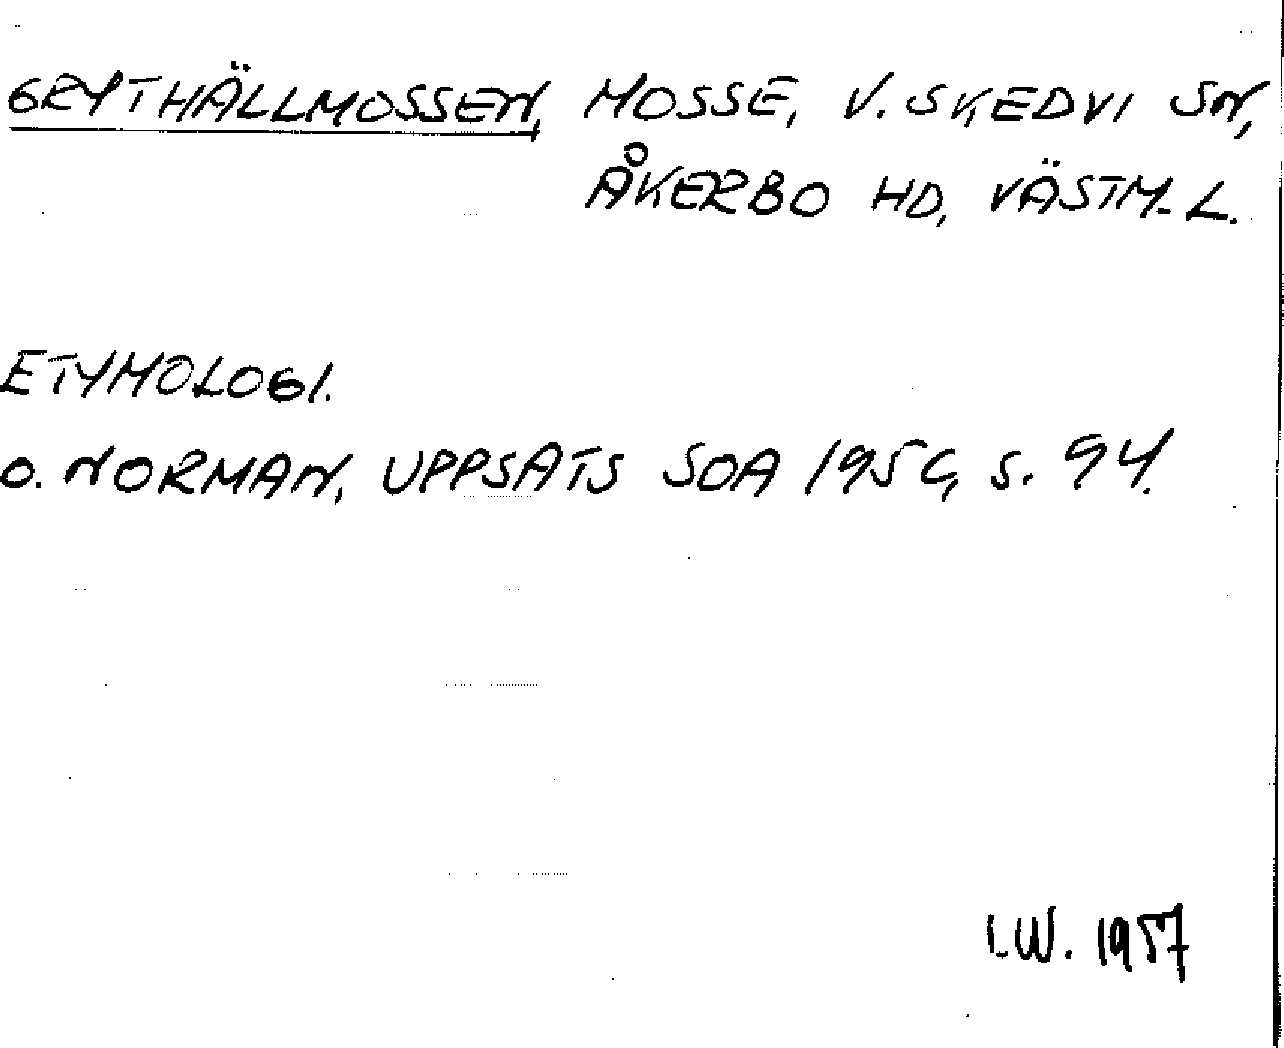 GRYTHÄLLMOSSEN, MOSSE, V. SKEDVI SN,
ÅKERBO HD, VÄSTM. L.
ETYMOLOGI.
O. NORMAN, UPPSATS SOA 1956, S. 94.
I.W. 1957